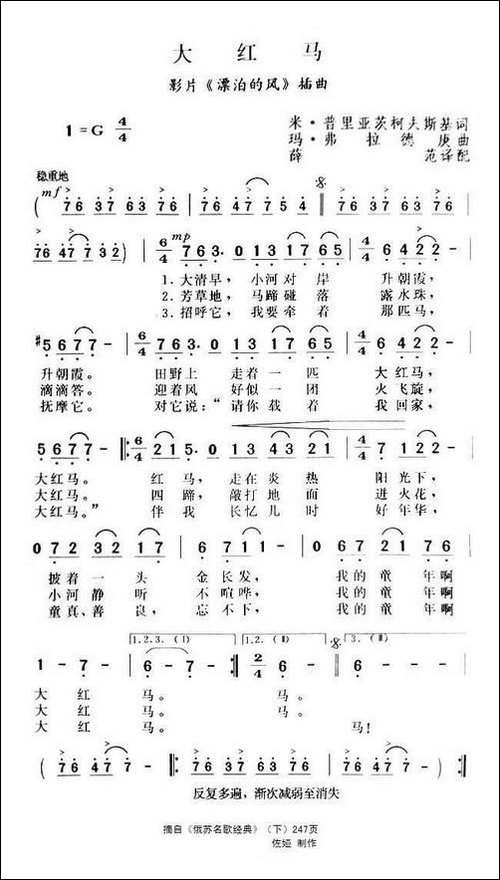 大 红 马
影片《漂泊的风》插曲
1=G 4/4
米·普里亚茨柯夫斯基词
玛·弗拉德庚曲
薛 范译配
稳重地
mf
( 76 37 63 37 | 76 47 75 4 | 76 37 63 37 |
mp
76 47 73 32 ) | 6/4 763· 013 17 65 | 4/4 6422 - |
1.大清早，小河对岸 升朝霞，
2.芳草地，马蹄碰落 露水珠，
3.招呼它，我要牵着 那匹马，
#5677 - | 6/4 763· 013 17 65 | 4/4 6422 - |
升朝霞。 田野上 走着一匹 大红马，
滴滴答。 迎着风 好似一团 火飞旋，
抚摩它。 对它说：“请你载着 我回家，
5677 - :6/4 215· 013 21 17 | 4/4 7122 - |
大红马。 红马，走在炎热 阳光下，
大红马。 四蹄，敲打地面 迸火花，
大红马。” 伴我 长忆儿时 好年华，
072 32 17 | 6711 - | 067 21 76 |
披着一头 金长发， 我的童年啊
小河静听 不喧哗， 我的童年啊
童真、善良， 忘不下， 我的童年啊
1.2.3.（Ⅰ） 1.2.（Ⅱ） 3.（Ⅱ）
1 - 7 · | 6 - 7 - :| 2/4 6 - :| 6 - |
大 红 马。 马。
大 红 马。 马。
大 红 马。 马！
( 76 47 73 32 : 76 37 63 37 | 76 47 75 4 :)
反复多遍，渐次减弱至消失
摘自《俄苏名歌经典》（下）247页
佐娅 制作